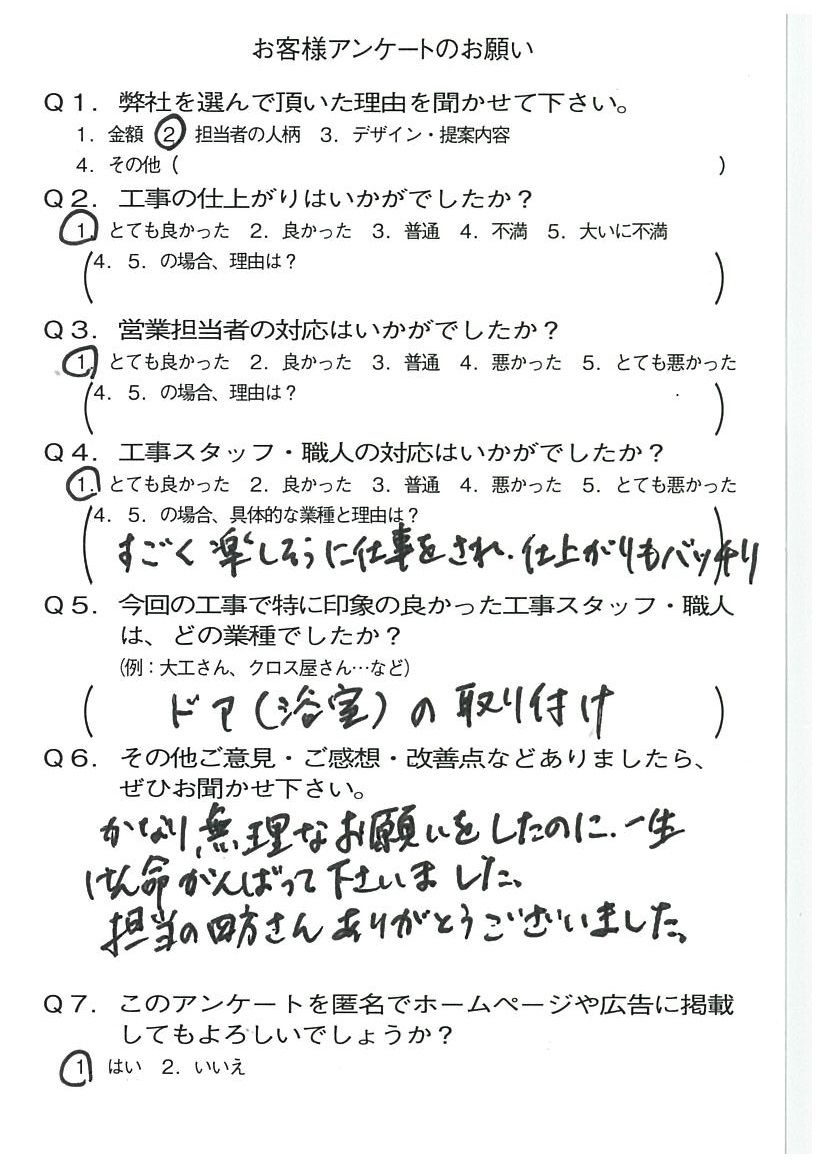 お客様アンケートのお願い
Q1. 弊社を選んで頂いた理由を聞かせて下さい。
1. 金額 ② 担当者の人柄 3. デザイン・提案内容
4. その他 ( )
Q2. 工事の仕上がりはいかがでしたか?
1. とても良かった 2. 良かった 3. 普通 4. 不満 5. 大いに不満
(4. 5. の場合、理由は? )
Q3. 営業担当者の対応はいかがでしたか?
1. とても良かった 2. 良かった 3. 普通 4. 悪かった 5. とても悪かった
(4. 5. の場合、理由は? )
Q4. 工事スタッフ・職人の対応はいかがでしたか?
1. とても良かった 2. 良かった 3. 普通 4. 悪かった 5. とても悪かった
(4. 5. の場合、具体的な業種と理由は?
すごく楽しそうに仕事をされ、仕上がりもバッチリ )
Q5. 今回の工事で特に印象の良かった工事スタッフ・職人
は、どの業種でしたか?
(例:大工さん、クロス屋さん…など)
( ドア(浴室)の取り付け )
Q6. その他ご意見・ご感想・改善点などありましたら、
ぜひお聞かせ下さい。
かなり無理なお願いをしたのに、一生
けん命がんばって下さいました。
担当の四方さんありがとうございました。
Q7. このアンケートを匿名でホームページや広告に掲載
してもよろしいでしょうか?
1 はい 2. いいえ